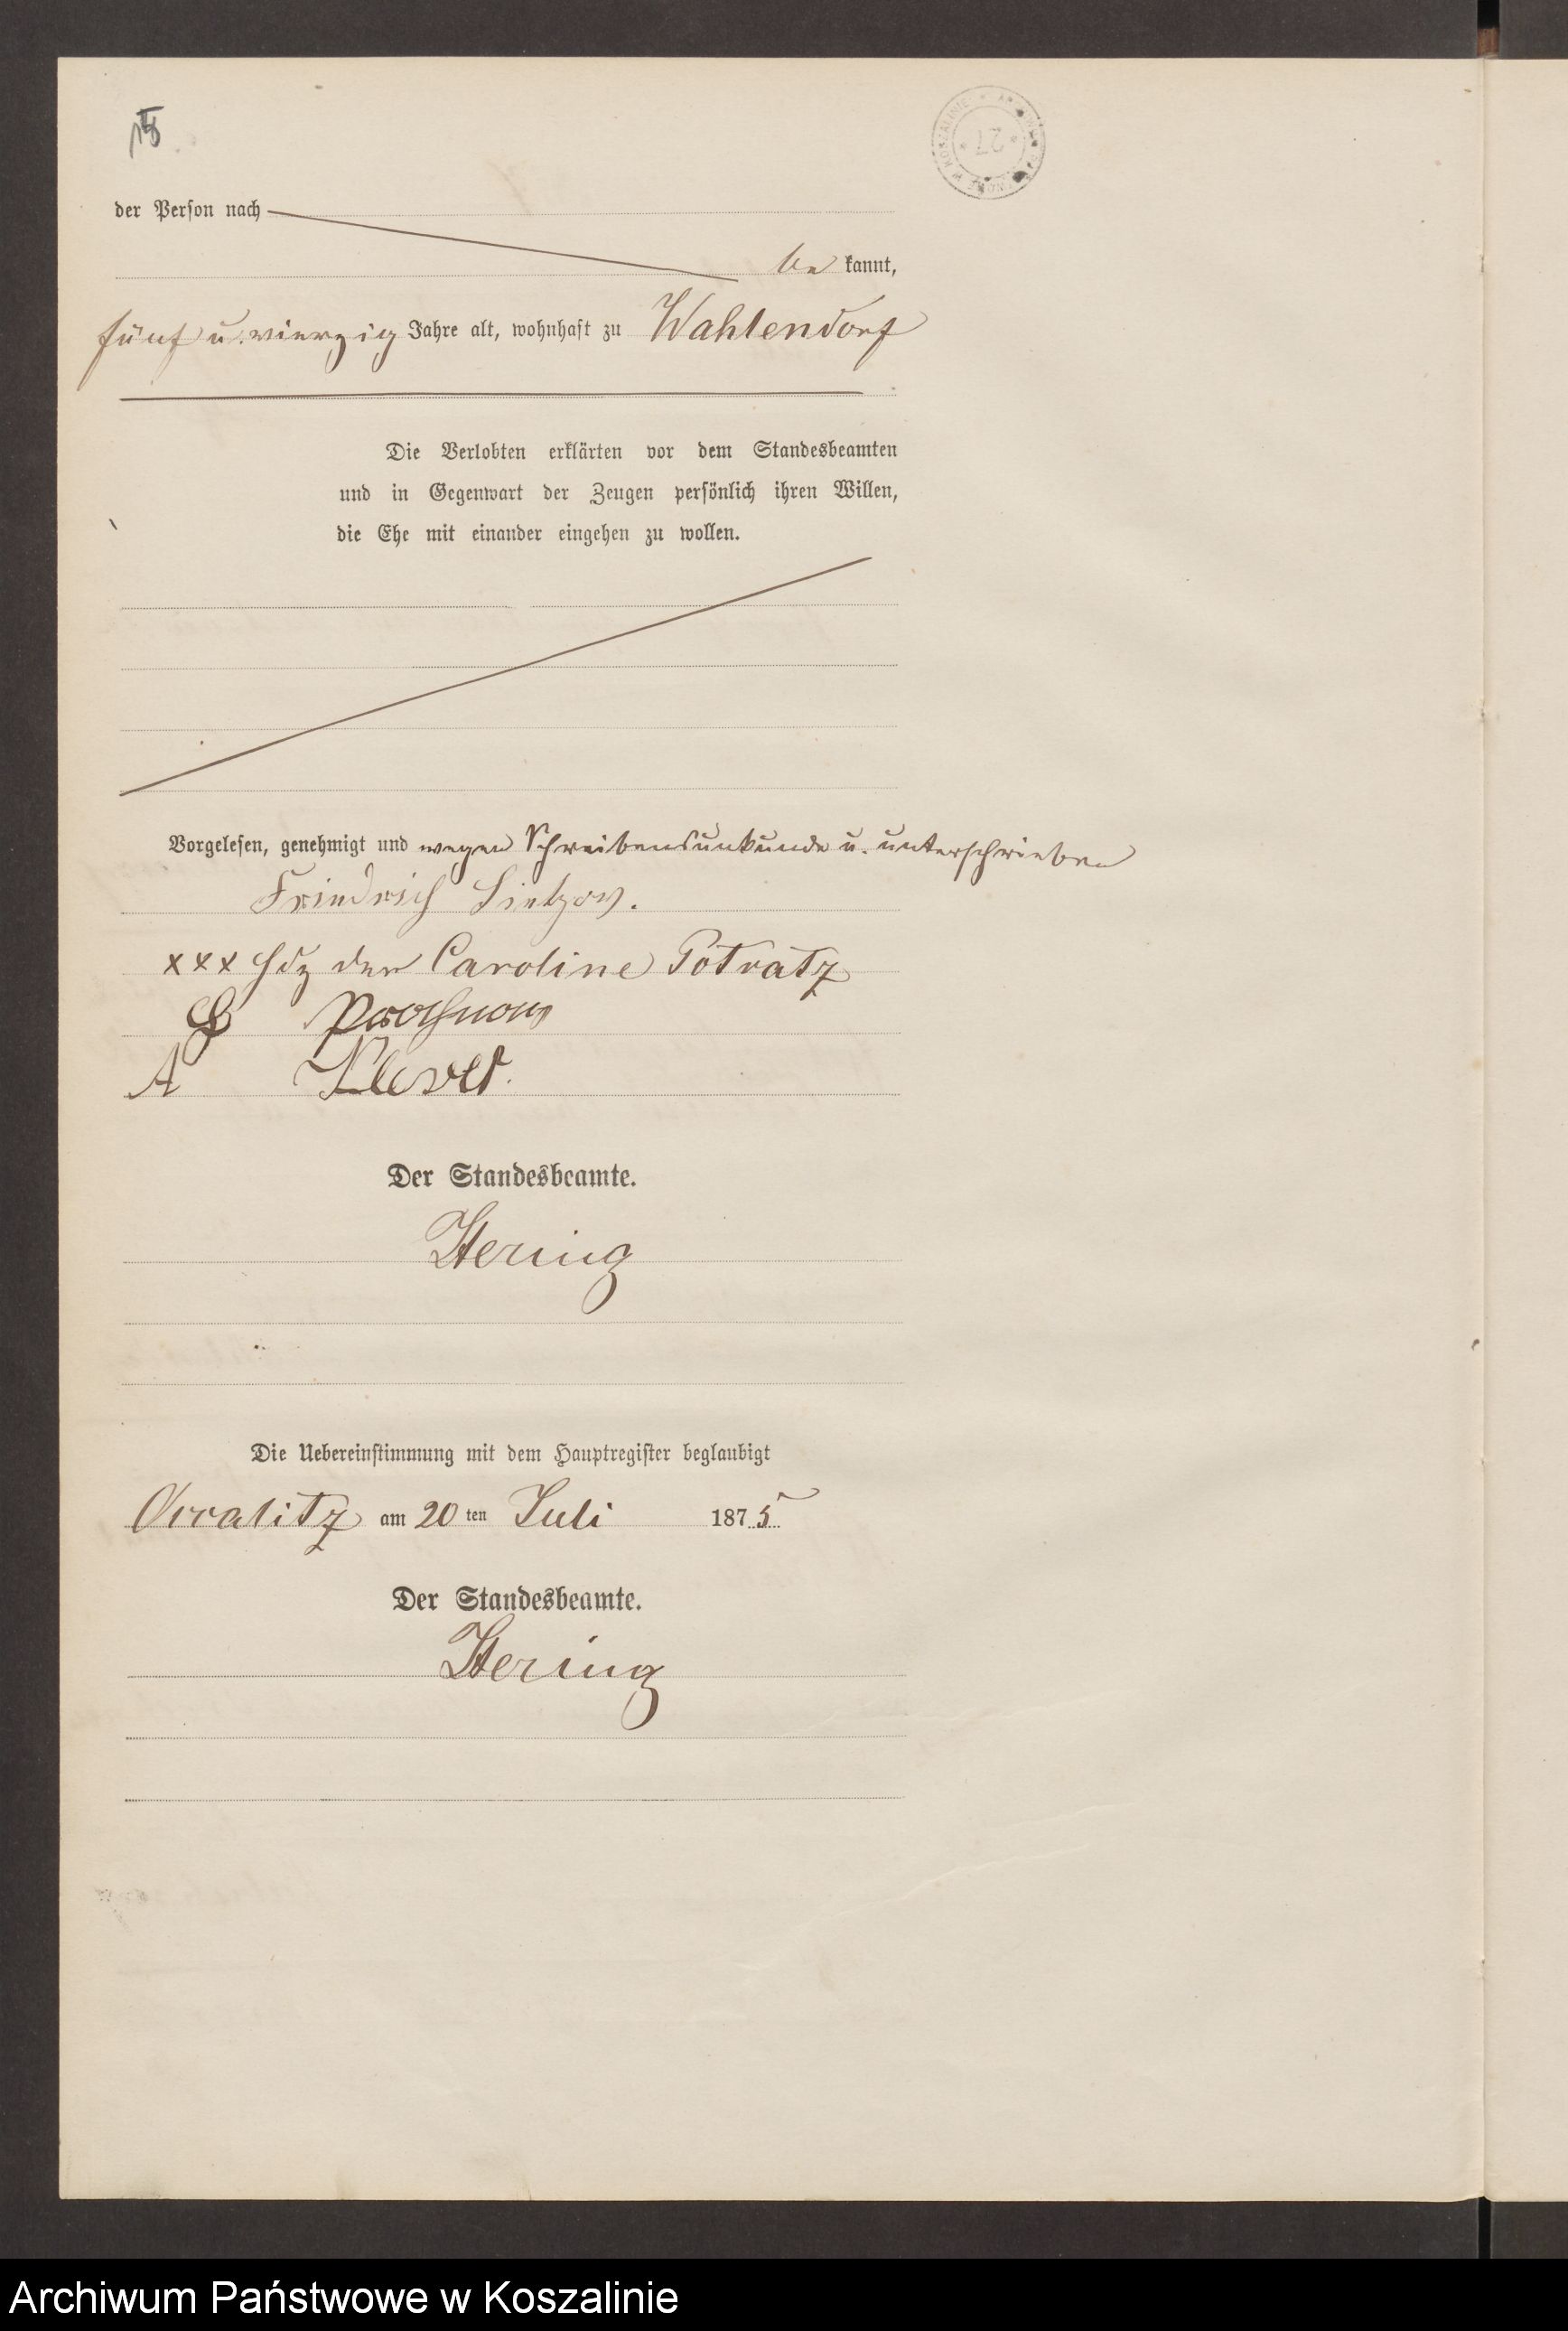 der Person nach
be kannt,
fünf u. vierzig Jahre alt, wohnhaft zu Wahlendorf
Die Verlobten erklärten vor dem Standesbeamten
und in Gegenwart der Zeugen persönlich ihren Willen,
die Ehe mit einander eingehen zu wollen.
Vorgelesen, genehmigt und wegen Schreibensunkunde u. unterschrieben
Friedrich Lietzow.
xxx Hdz der Caroline Potratz
A Klever.
Der Standesbeamte.
Hering
Die Uebereinstimmung mit dem Hauptregister beglaubigt
am 20ten Juli 1875
Der Standesbeamte.
Hering
Archiwum Państwowe w Koszalinie